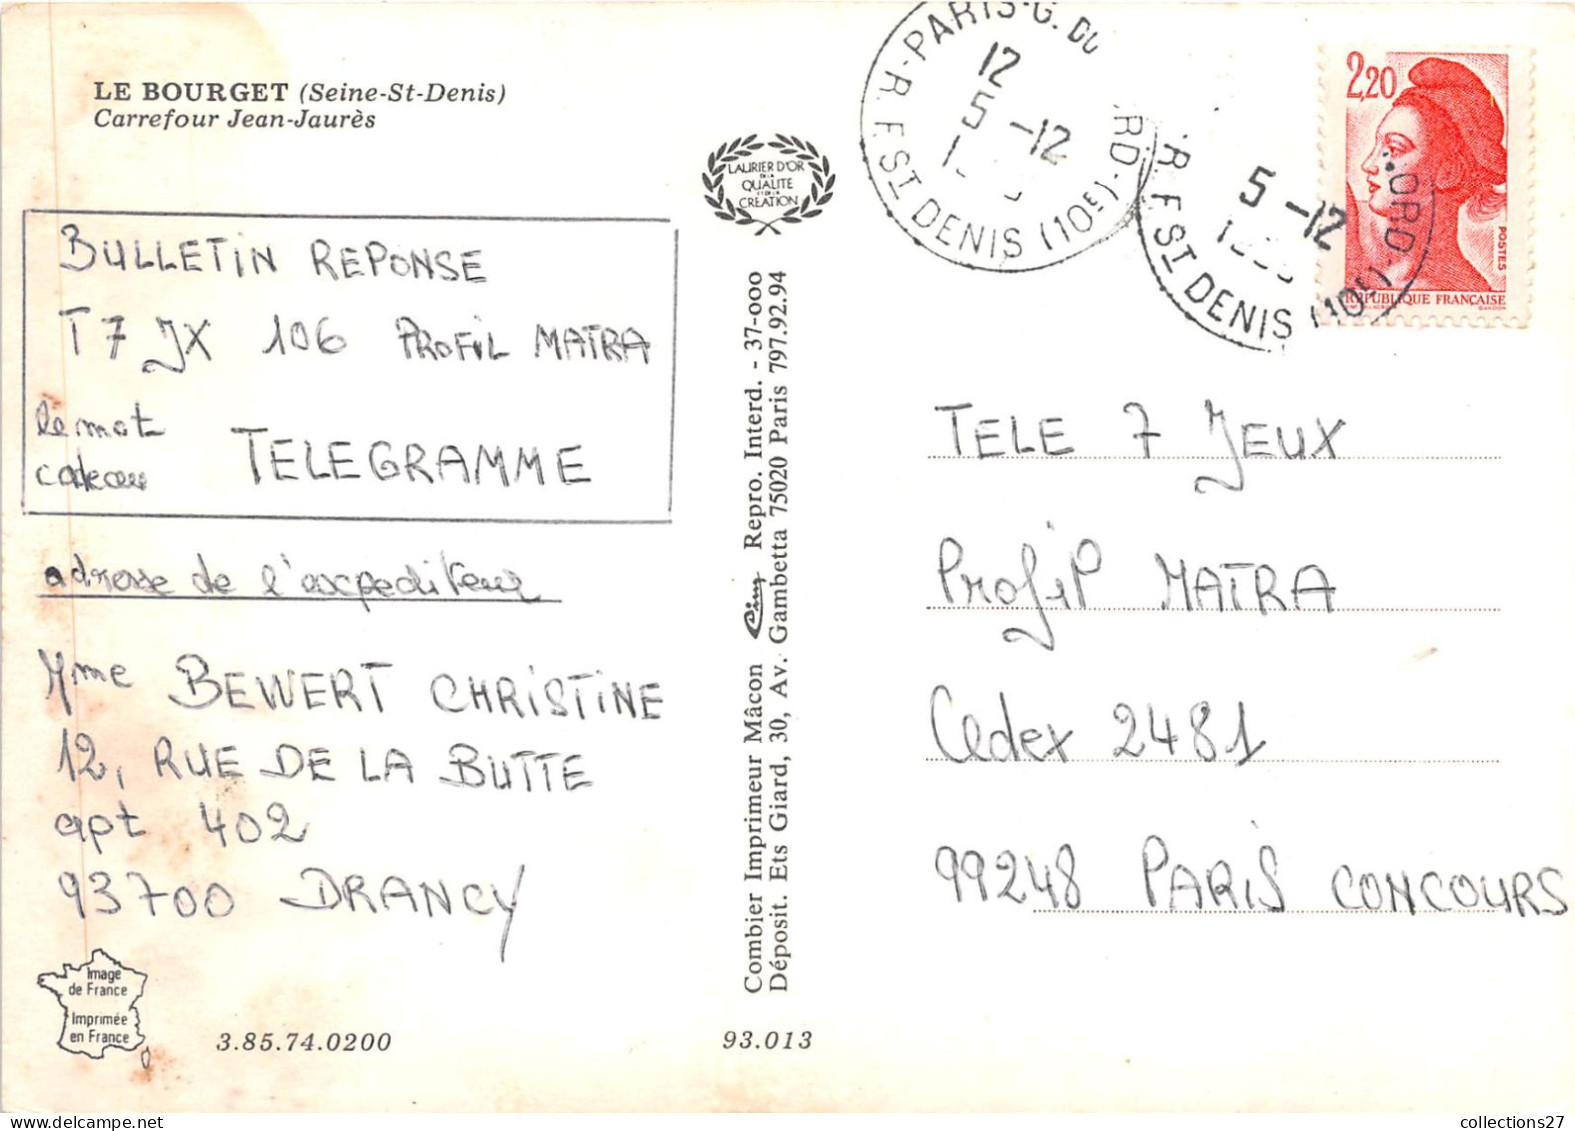 LE BOURGET (Seine-St-Denis)
Carrefour Jean-Jaurès
BULLETIN REPONSE
T 7 JX 106 PROFIL MATRA
le mot
cadeau
TELEGRAMME
adresse de l'expediteur
Mme BEWERT CHRISTINE
12, RUE DE LA BUTTE
apt 402
93700 DRANCY
Image
de France
Imprimée
en France
3.85.74.0200
93.013
LAURIER D'OR
DE LA
QUALITE
ET DE LA
CREATION
Combier Imprimeur Mâcon Cim Repro. Interd. - 37-000
Déposit. Ets Giard, 30, Av. Gambetta 75020 Paris 797.92.94
PARIS-G. DU
RD
R. F. ST DENIS (10E)
12
5 -12
R. F. ST DENIS (10E)
ORD
5 -12
2,20
POSTES
REPUBLIQUE FRANÇAISE
GANDON
TELE 7 JEUX
Profil MATRA
Cedex 2481
99248 PARIS CONCOURS
collections27